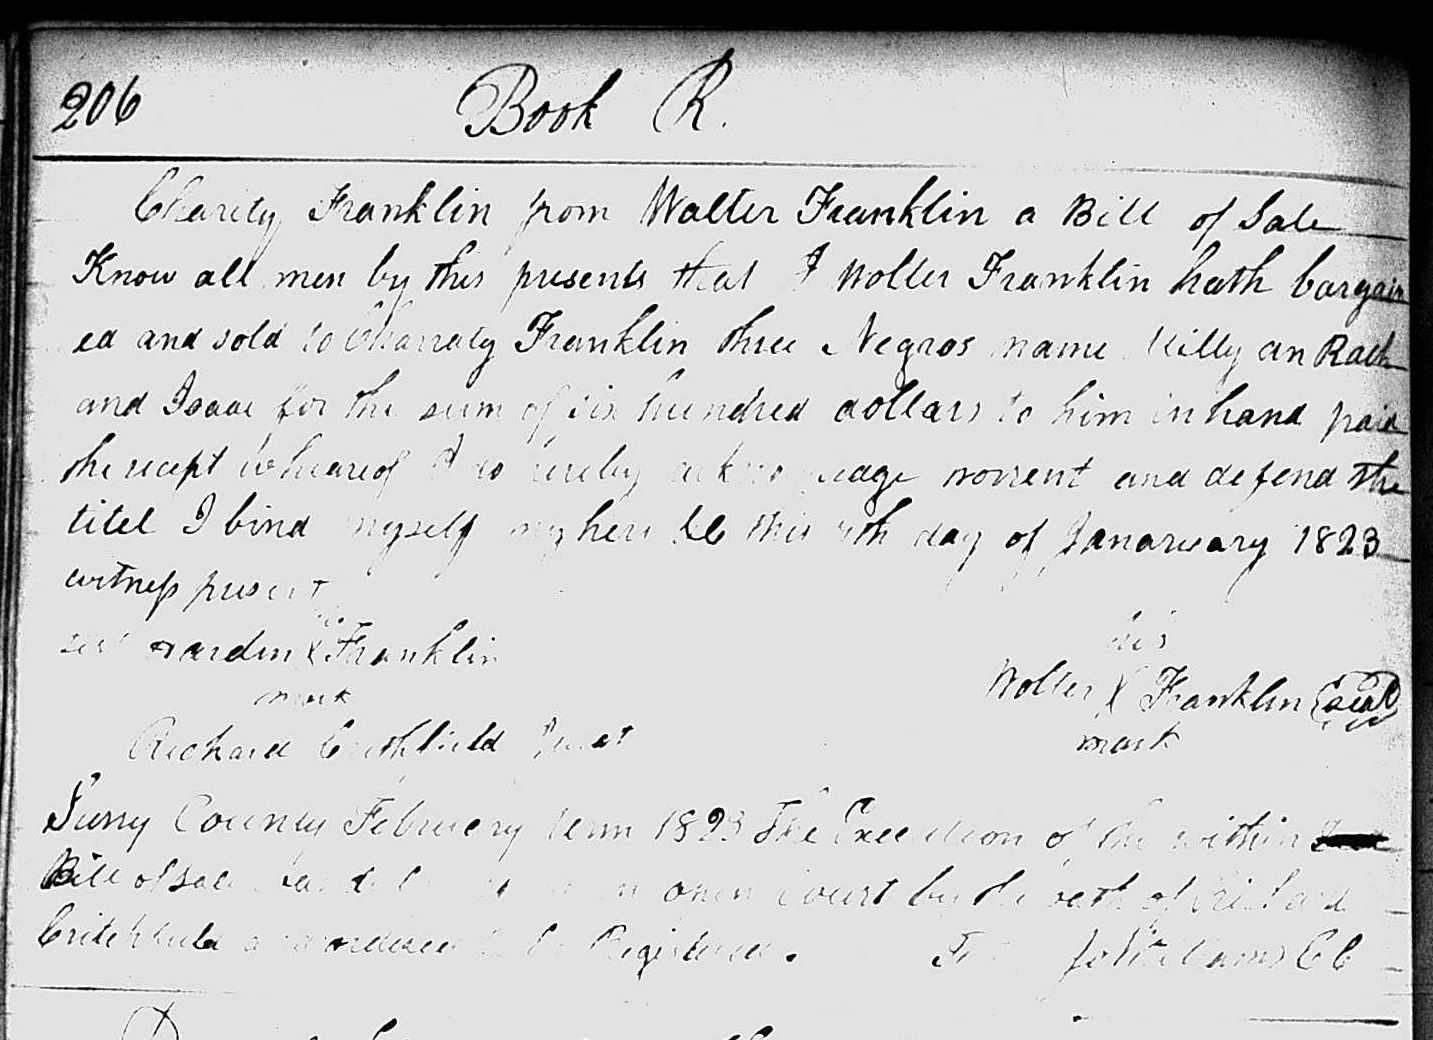 206 Book R.
Charity Franklin from Walter Franklin a Bill of Sale
Know all men by this presents that I Wolter Franklin hath bargain
ed and sold to Charraty Franklin three Negros name Milly an Rach
and Isaac for the sum of six hundred dollars to him in hand paid
the recept wheareof I do hereby acknowledge worrent and defend the
titel I bind myself my heirs &c this day of Janaruary 1823
witness present
Franklin his
mark Wolter X Franklin (seal)
Richard Critchfield Jurat mark
Surry County February term 1823 The Execution of the within
Bill of Sale in open court by the oath of Richard
Critchfield ordered to be Registered. Jo Williams CC